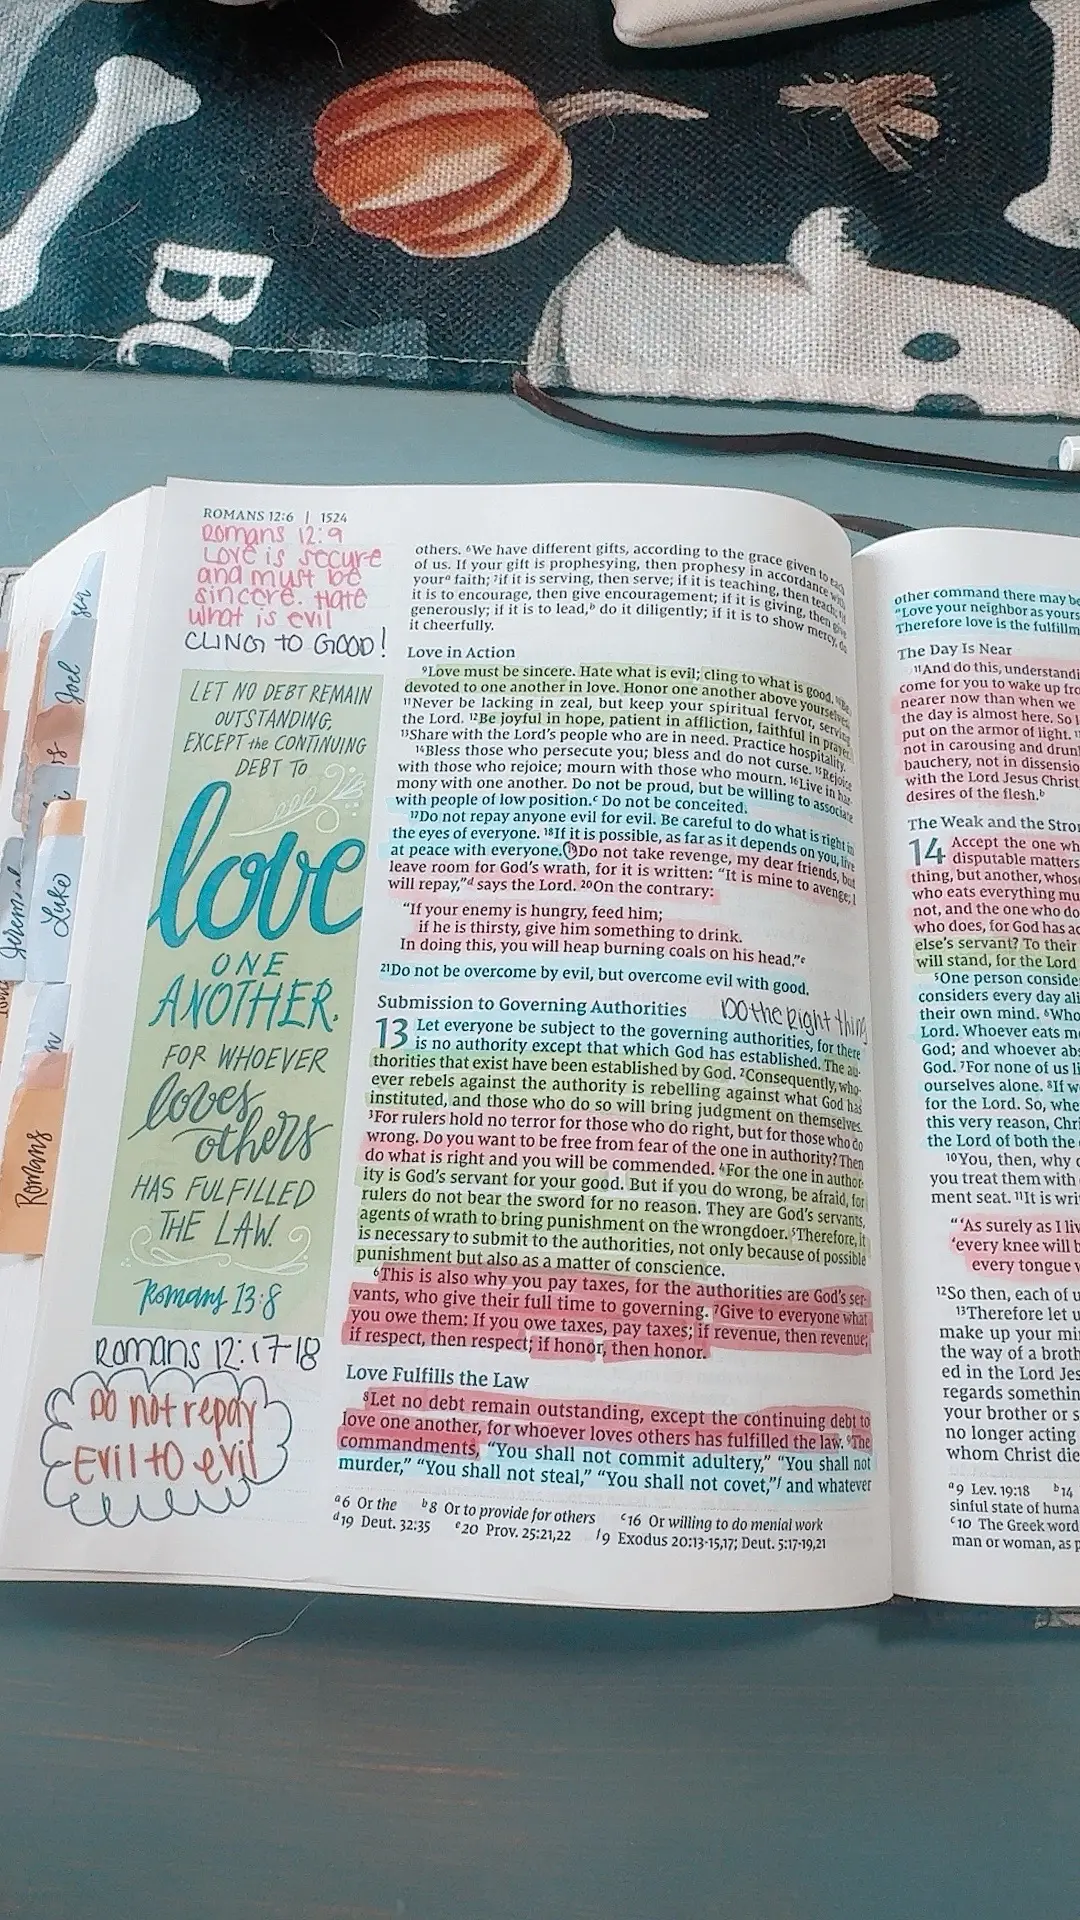 BO
ROMANS 12:6 | 1524
Romans 12:9
Love is secure
and must be
sincere. Hate
what is evil
CLING TO GOOD!
LET NO DEBT REMAIN
OUTSTANDING,
EXCEPT the CONTINUING
DEBT TO
love
ONE
ANOTHER.
FOR WHOEVER
loves
others
HAS FULFILLED
THE LAW.
Romans 13:8
Romans 12:17-18
Do not repay
Evil to evil
Joel
Jeremiah
Luke
Romans
others. ⁶We have different gifts, according to the grace given to each
of us. If your gift is prophesying, then prophesy in accordance with
yourᵃ faith; ⁷if it is serving, then serve; if it is teaching, then teach; ⁸if
it is to encourage, then give encouragement; if it is giving, then give
generously; if it is to lead,ᵇ do it diligently; if it is to show mercy, do
it cheerfully.
Love in Action
⁹Love must be sincere. Hate what is evil; cling to what is good. ¹⁰Be
devoted to one another in love. Honor one another above yourselves.
¹¹Never be lacking in zeal, but keep your spiritual fervor, serving
the Lord. ¹²Be joyful in hope, patient in affliction, faithful in prayer.
¹³Share with the Lord's people who are in need. Practice hospitality.
¹⁴Bless those who persecute you; bless and do not curse. ¹⁵Rejoice
with those who rejoice; mourn with those who mourn. ¹⁶Live in har-
mony with one another. Do not be proud, but be willing to associate
with people of low position.ᶜ Do not be conceited.
¹⁷Do not repay anyone evil for evil. Be careful to do what is right in
the eyes of everyone. ¹⁸If it is possible, as far as it depends on you, live
at peace with everyone. ¹⁹Do not take revenge, my dear friends, but
leave room for God's wrath, for it is written: "It is mine to avenge; I
will repay,"ᵈ says the Lord. ²⁰On the contrary:
"If your enemy is hungry, feed him;
if he is thirsty, give him something to drink.
In doing this, you will heap burning coals on his head."ᵉ
²¹Do not be overcome by evil, but overcome evil with good.
Submission to Governing Authorities
Do the right thing
13 Let everyone be subject to the governing authorities, for there
is no authority except that which God has established. The au-
thorities that exist have been established by God. ²Consequently, who-
ever rebels against the authority is rebelling against what God has
instituted, and those who do so will bring judgment on themselves.
³For rulers hold no terror for those who do right, but for those who do
wrong. Do you want to be free from fear of the one in authority? Then
do what is right and you will be commended. ⁴For the one in author-
ity is God's servant for your good. But if you do wrong, be afraid, for
rulers do not bear the sword for no reason. They are God's servants,
agents of wrath to bring punishment on the wrongdoer. ⁵Therefore, it
is necessary to submit to the authorities, not only because of possible
punishment but also as a matter of conscience.
⁶This is also why you pay taxes, for the authorities are God's ser-
vants, who give their full time to governing. ⁷Give to everyone what
you owe them: If you owe taxes, pay taxes; if revenue, then revenue;
if respect, then respect; if honor, then honor.
Love Fulfills the Law
⁸Let no debt remain outstanding, except the continuing debt to
love one another, for whoever loves others has fulfilled the law. ⁹The
commandments, "You shall not commit adultery," "You shall not
murder," "You shall not steal," "You shall not covet,"ᶠ and whatever
ᵃ6 Or the ᵇ8 Or to provide for others ᶜ16 Or willing to do menial work
ᵈ19 Deut. 32:35 ᵉ20 Prov. 25:21,22 ᶠ9 Exodus 20:13-15,17; Deut. 5:17-19,21
other command there may be
"Love your neighbor as yours
Therefore love is the fulfillm
The Day Is Near
¹¹And do this, understandi
come for you to wake up fro
nearer now than when we
the day is almost here. So l
put on the armor of light.
not in carousing and drun
bauchery, not in dissensio
with the Lord Jesus Christ
desires of the flesh.ᵇ
The Weak and the Stron
14 Accept the one wh
disputable matters
thing, but another, whose
who eats everything mu
not, and the one who do
who does, for God has ac
else's servant? To their
will stand, for the Lord
⁵One person conside
considers every day ali
their own mind. ⁶Who
Lord. Whoever eats me
God; and whoever abs
God. ⁷For none of us li
ourselves alone. ⁸If w
for the Lord. So, whe
this very reason, Chri
the Lord of both the
¹⁰You, then, why
you treat them with
ment seat. ¹¹It is wri
"'As surely as I liv
'every knee will b
every tongue w
¹²So then, each of u
¹³Therefore let u
make up your min
the way of a broth
ed in the Lord Jes
regards somethin
your brother or s
no longer acting
whom Christ die
ᵃ9 Lev. 19:18 ᵇ14
sinful state of huma
ᶜ10 The Greek word
man or woman, as p